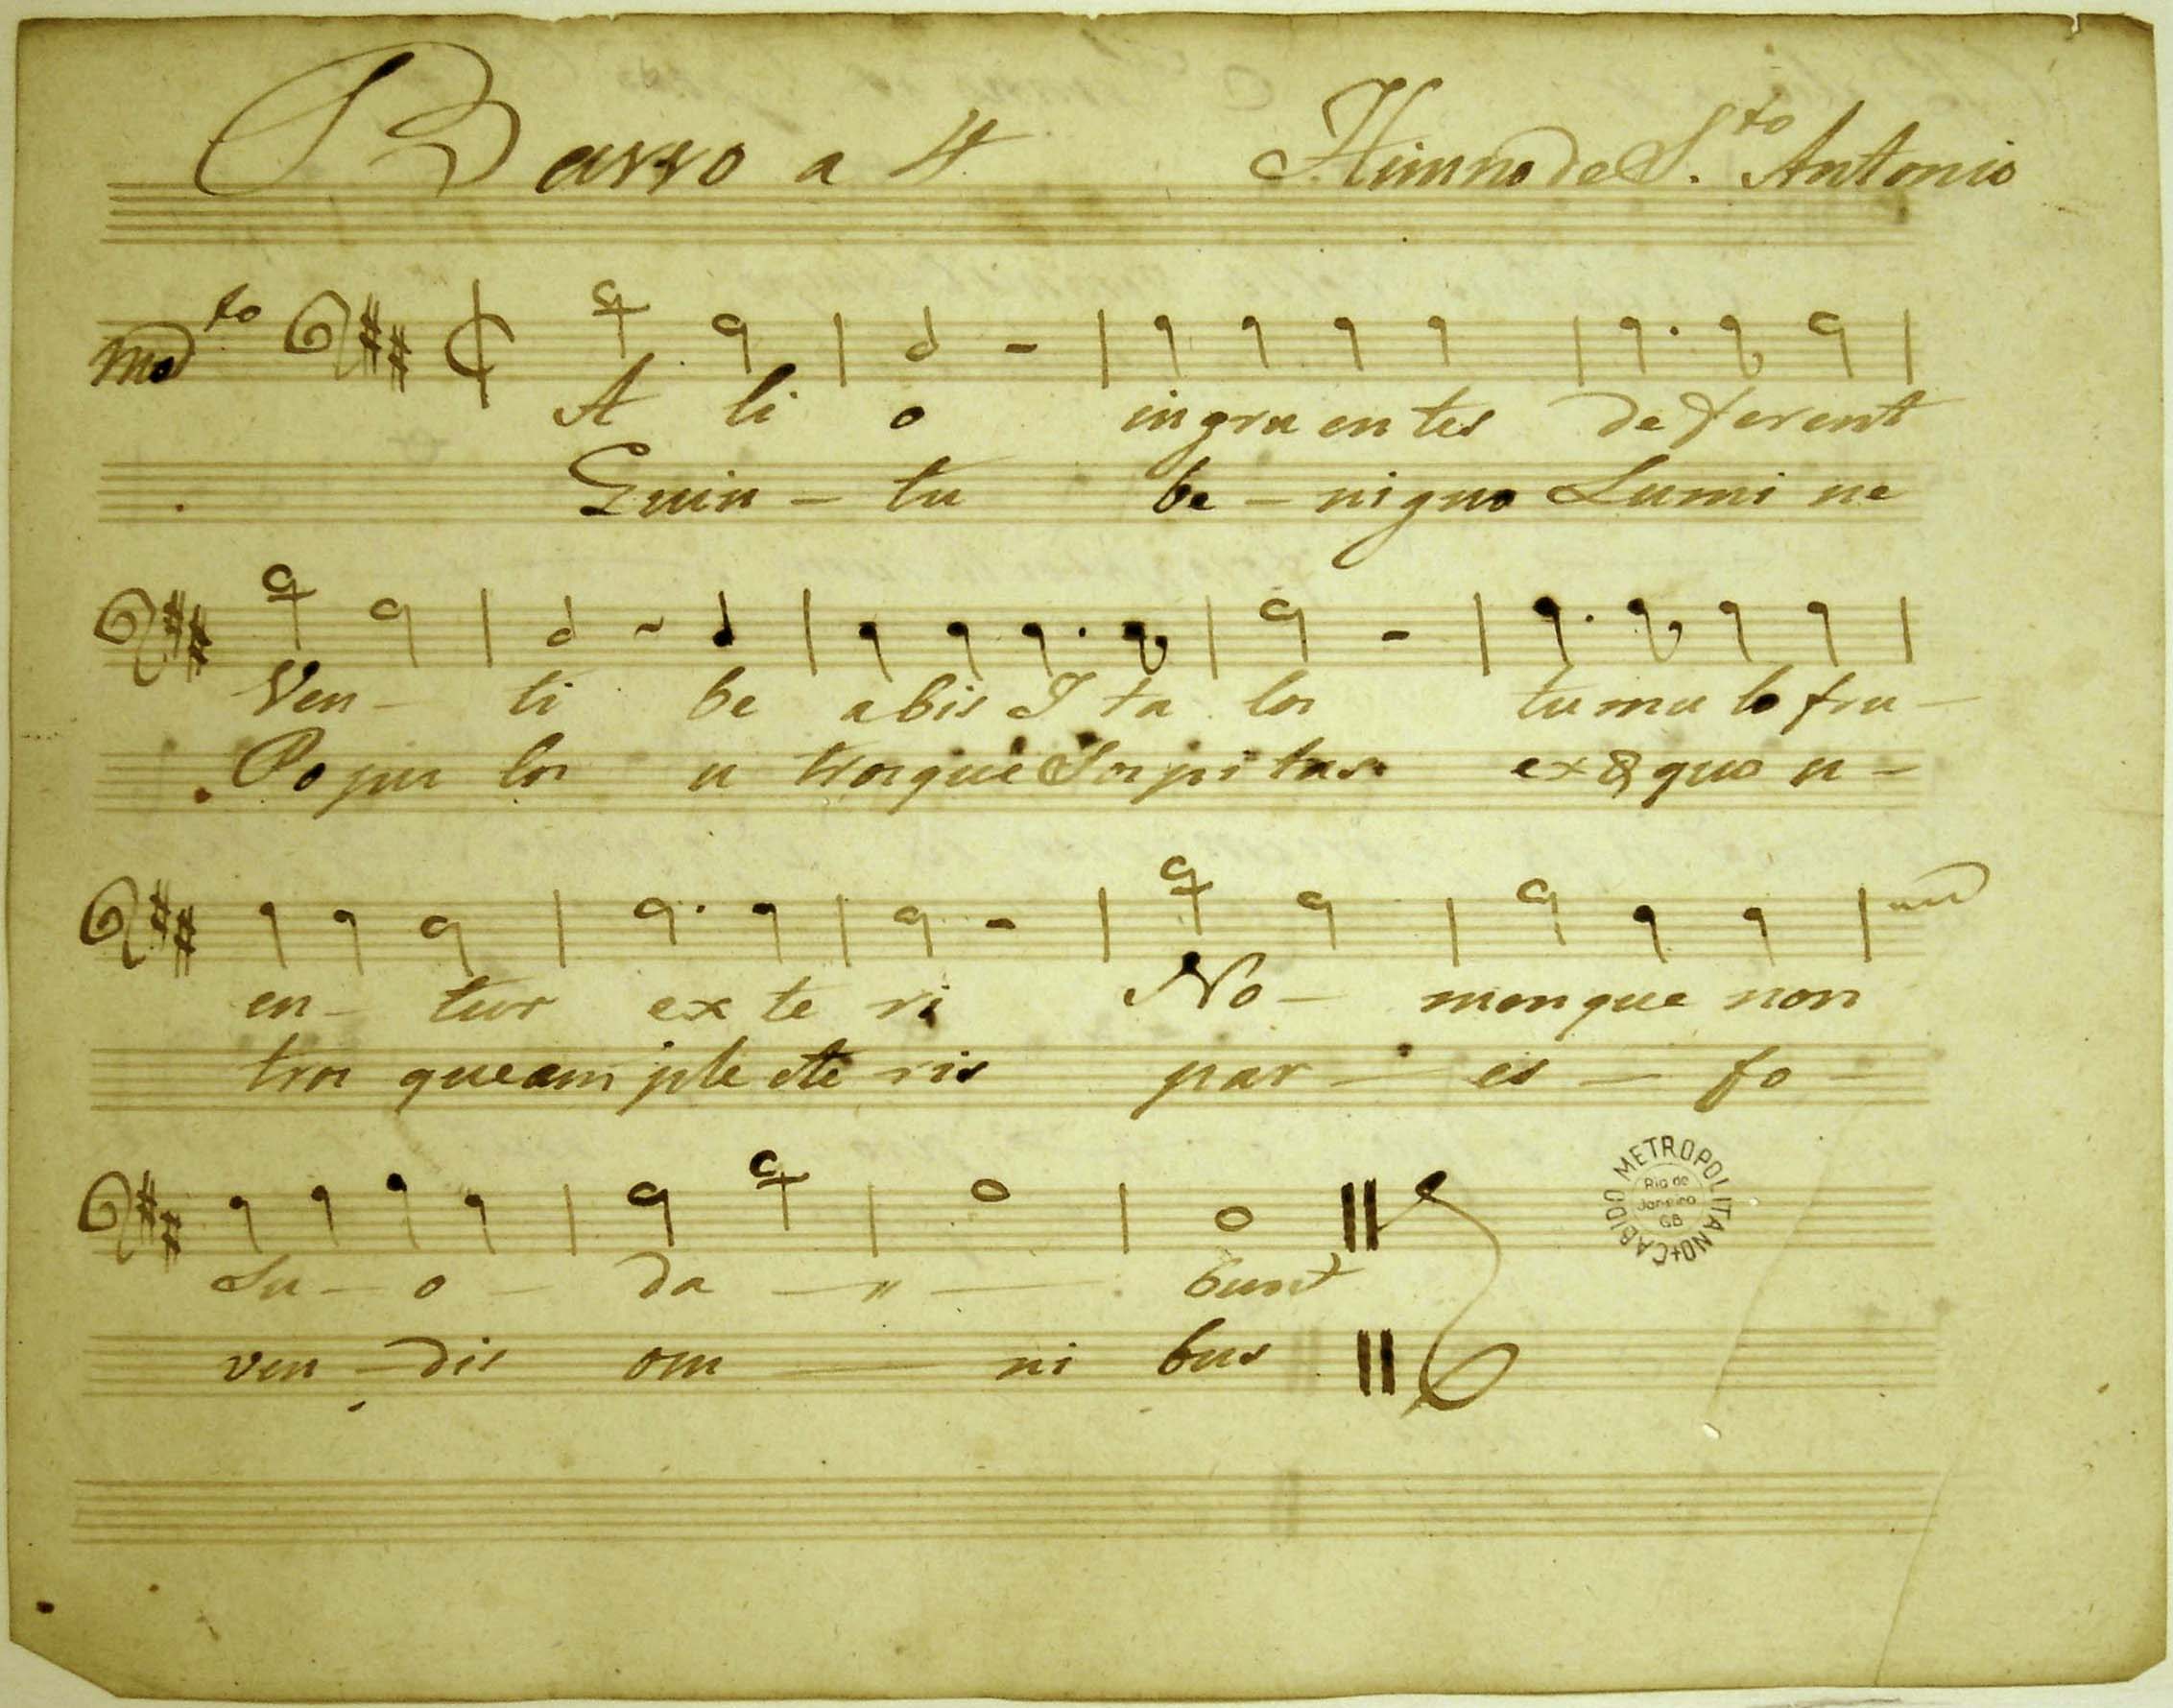 Basso a 4 Himno de S.to Antonio
Mod.to
A li o ingru en tes de ferent
Quin - tu be - nigno Lumi ne
Ven - ti be abis I ta los tumu lo fru -
Popu los u trosque Sospi tas ex æ quo u -
en - tur ex te ri No - menque non
tros queam ple cte ris par - es - fo -
Su - o - da - " - bunt
ven - dis om - ni bus
CABIDO METROPOLITANO
Rio de Janeiro GB